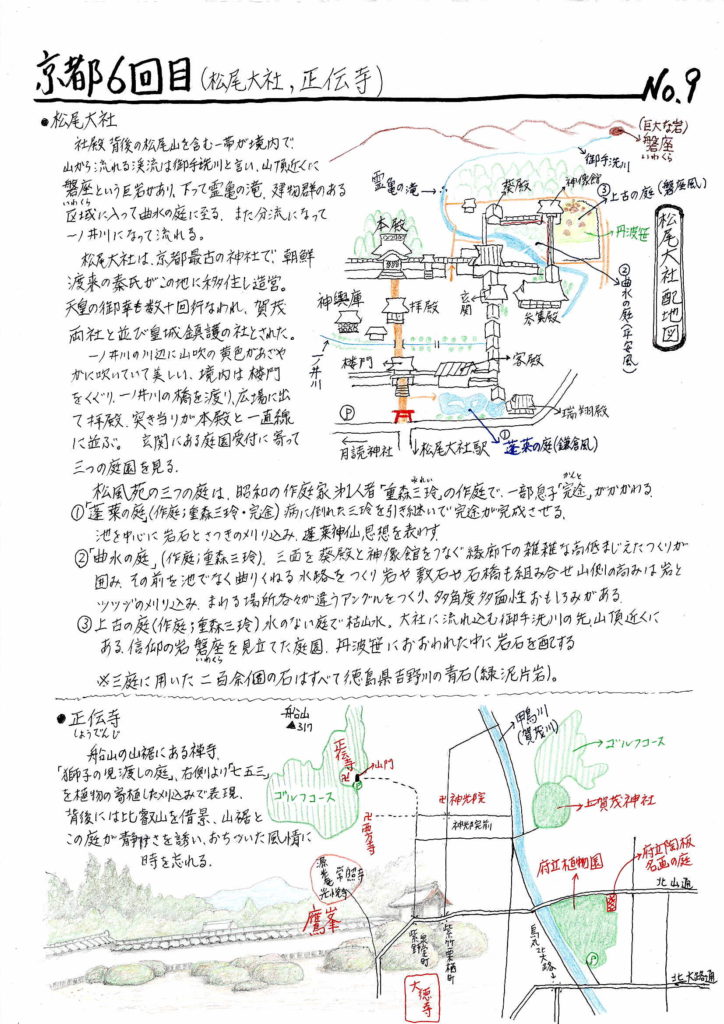 京都6回目(松尾大社,正伝寺)
No.9
●松尾大社
社殿背後の松尾山を含む一帯が境内で
山から流れる渓流は御手洗川と言い、山頂近くに
磐座という巨岩があり、下って霊亀の滝、建物群のある
いわくら
区域に入って曲水の庭に至る、また分流になって
一ノ井川になって流れる。
松尾大社は、京都最古の神社で、朝鮮
渡来の秦氏がこの地に移住し造営。
天皇の御幸も数十回行なわれ、賀茂
両社と並び皇城鎮護の社とされた。
一ノ井川の川辺に山吹の黄色があざや
かに吹いていて美しい、境内は楼門
をくぐり、一ノ井川の橋を渡り、広場に出
て拝殿、突き当りが本殿と一直線
に並ぶ。玄関にある庭園受付に寄って
三つの庭園を見る。
(巨大な岩)
磐座
いわくら
御手洗川
霊亀の滝
葵殿
神像館
③上古の庭(磐座風)
丹波笹
本殿
松尾大社配地図
②曲水の庭(平安風)
神輿庫
拝殿
玄関
参集殿
一ノ井川
楼門
客殿
瑞翔殿
P
月読神社
松尾大社駅
①
蓬莱の庭(鎌倉風)
松風苑の三つの庭は、昭和の作庭家第1人者「重森三玲」の作庭で、一部息子「完途」がかかわる
みれい
かんと
①「蓬莱の庭」(作庭;重森三玲・完途)病に倒れた三玲を引き継いで完途が完成させる.
池を中心に岩石とさつきのメリり込み、蓬莱神仙思想を表わす
②「曲水の庭」(作庭;重森三玲).三面を葵殿と神像館をつなぐ縁廊下の雑雑な高低まじえたつくりが
囲み、その前を池でなく曲りくねる水路をつくり岩や敷石や石橋も組み合せ山側の高みは岩と
ツツヅのメリり込み、まわる場所各々が違うアングルをつくり、多角度多面性おもしろみがある.
③上古の庭(作庭;重森三玲)水のない庭で枯山水。大社に流れ込む御手洗川の先、山頂近くに
ある信仰の岩磐座を見立てた庭園.丹波笹におおわれた中に岩石を配する
いわくら
※三庭に用いた二百余個の石はすべて徳島県吉野川の青石(緑泥片岩)。
●正伝寺
しょうでんじ
船山の山裾にある禅寺、
「獅子の児渡しの庭」、右側より「七五三」
を植物の寄植した刈り込みで表現.
背後には比叡山を借景、山裾と
この庭が静けさを誘い、おちついた風情に
時を忘れる.
船山
▲317
正伝寺
山門
P
ゴルフコース
卍西方寺
卍神光院
神光院前
鴨川
(賀茂川)
ゴルフコース
上賀茂神社
源光庵
常照寺
光悦寺
鷹峯
府立植物園
府立陶板
名画の庭
北山通
P
紫竹栗栖町
烏丸北大路
北大路通
大徳寺